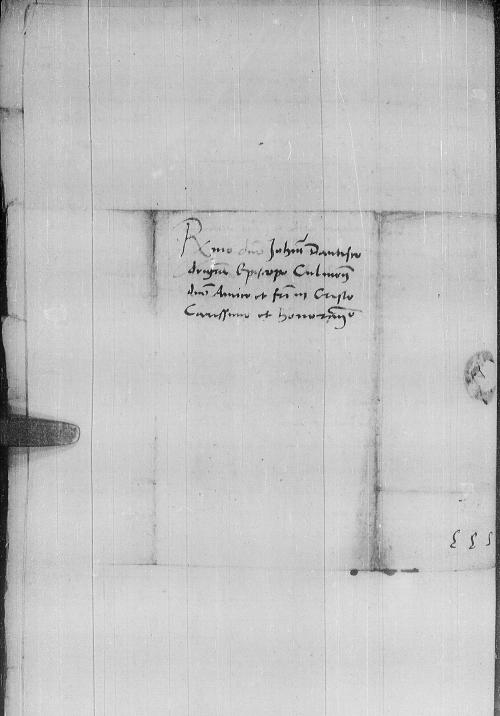 Rmo dno Johanni Dantisco
dei gra Episcopo Culmen
dno Amico et fri in Cristo
Carissimo et honoran